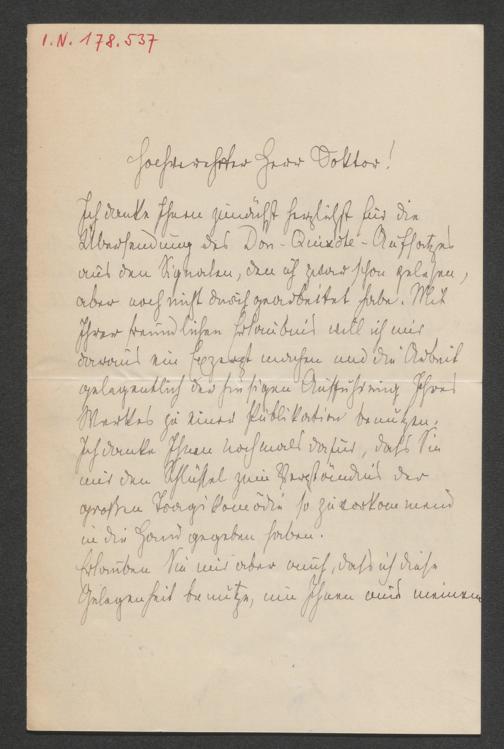 I.N. 178.537
Hochverehrter Herr Doktor!
Ich danke Ihnen zunächst herzlichst für die
Übersendung des Don-Quixote-Aufsatzes
aus den Signalen, den ich zwar schon gelesen,
aber noch nicht durchgearbeitet habe. Mit
Ihrer freundlichen Erlaubnis will ich mir
daraus ein Exzerpt machen und die Arbeit
gelegentlich der hiesigen Aufführung Ihres
Werkes zu einer Publikation benutzen.
Ich danke Ihnen nochmals dafür, daß Sie
mir den Schlüssel zum Verständnis der
großen Tragikomödie so zuvorkommend
in die Hand gegeben haben.
Erlauben Sie mir aber auch, daß ich diese
Gelegenheit benutze, um Ihnen aus meinem